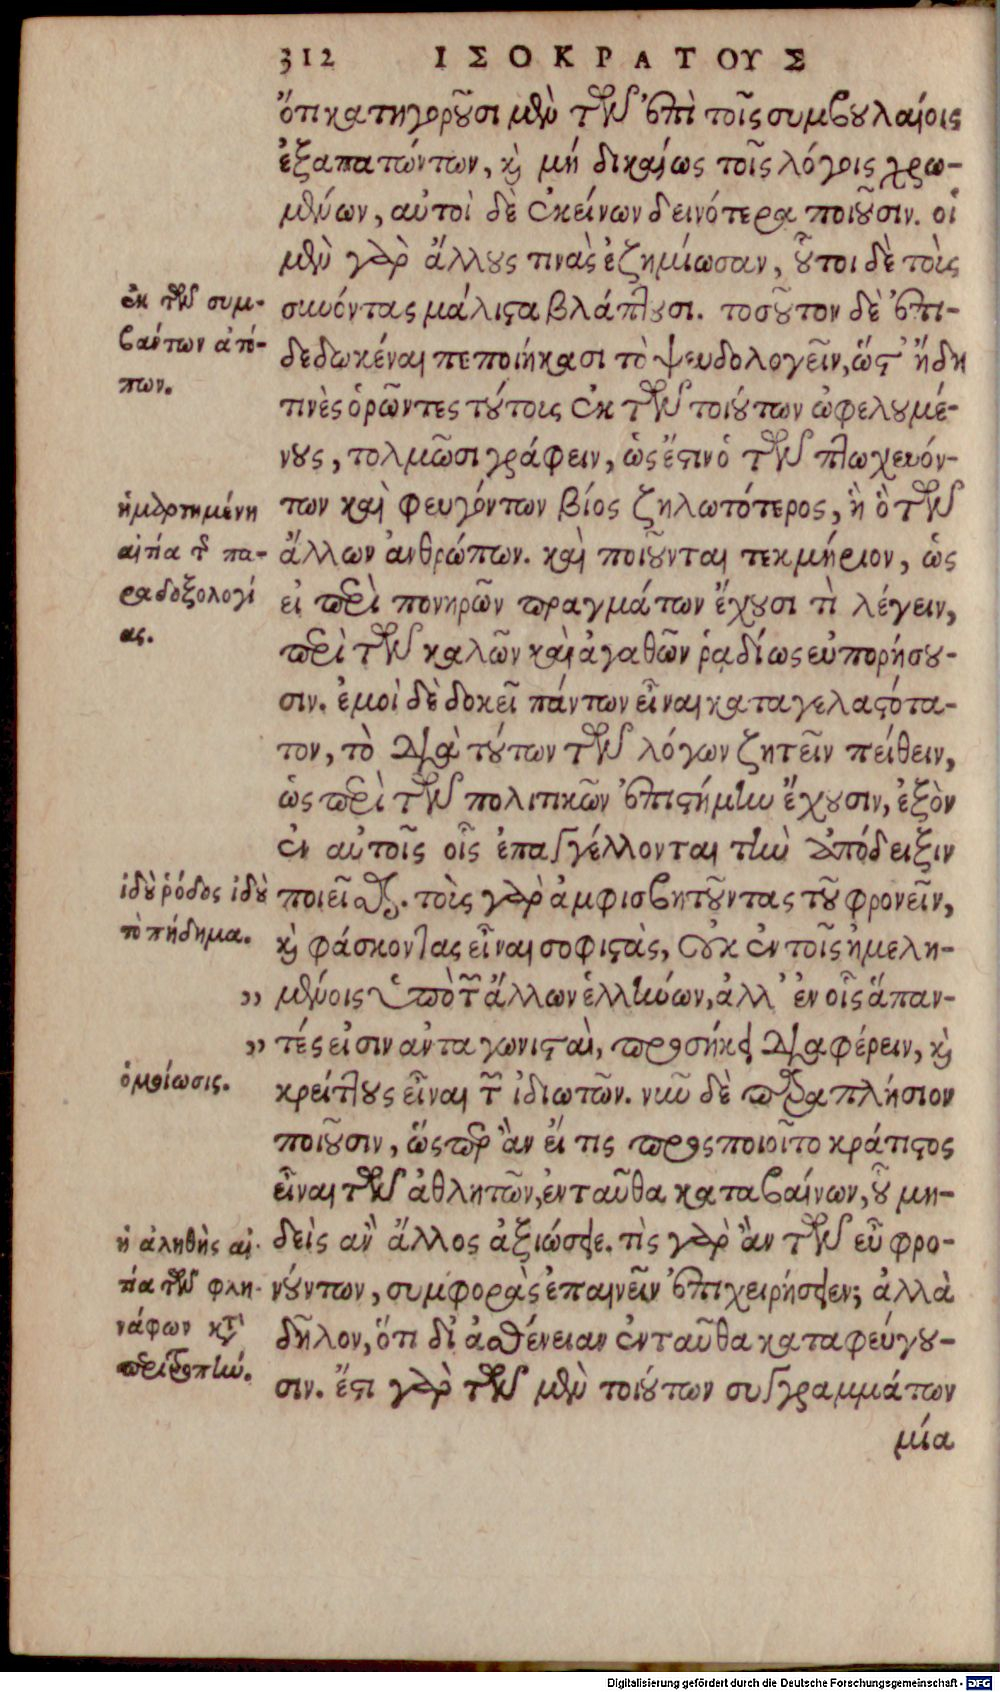 312 ΙΣΟΚΡΑΤΟΥΣ
ὅτι κατηγοροῦσι μὲν τῶν ἐπὶ τοῖς συμβολαίοις
ἐξαπατώντων, καὶ μὴ δικαίως τοῖς λόγοις χρω-
μένων, αὐτοὶ δὲ ἐκείνων δεινότερα ποιοῦσιν. οἱ
μὲν γὰρ ἄλλους τινὰς ἐζημίωσαν, οὗτοι δὲ τοὺς
συνόντας μάλιστα βλάπτουσι. τοσοῦτον δὲ ἐπι-
δεδωκέναι πεποιήκασι τὸ ψευδολογεῖν, ὥστ' ἤδη
τινὲς ὁρῶντες τούτοις ἐκ τῶν τοιούτων ὠφελουμέ-
νους, τολμῶσι γράφειν, ὡς ἔστιν ὁ τῶν πτωχευόν-
των καὶ φευγόντων βίος ζηλωτότερος, ἢ ὁ τῶν
ἄλλων ἀνθρώπων. καὶ ποιοῦνται τεκμήριον, ὡς
εἰ περὶ πονηρῶν πραγμάτων ἔχουσι τὶ λέγειν,
περὶ τῶν καλῶν καὶ ἀγαθῶν ῥᾳδίως εὐπορήσου-
σιν. ἐμοὶ δὲ δοκεῖ πάντων εἶναι καταγελαστότα-
τον, τὸ διὰ τούτων τῶν λόγων ζητεῖν πείθειν,
ὡς περὶ τῶν πολιτικῶν ἐπιστήμην ἔχουσιν, ἐξὸν
ἐν αὐτοῖς οἷς ἐπαγγέλλονται τὴν ἀπόδειξιν
ποιεῖσθαι. τοὺς γὰρ ἀμφισβητοῦντας τοῦ φρονεῖν,
καὶ φάσκοντας εἶναι σοφιστὰς, οὐκ ἐν τοῖς ἠμελη-
„ μένοις ὑπὸ τῶν ἄλλων ἑλλήνων, ἀλλ' ἐν οἷς ἅπαν-
„ τές εἰσιν ἀνταγωνισταὶ, προσήκει διαφέρειν, καὶ
κρείττους εἶναι τῶν ἰδιωτῶν. νῦν δὲ παραπλήσιον
ποιοῦσιν, ὥσπερ ἂν εἴ τις προσποιοῖτο κράτιστος
εἶναι τῶν ἀθλητῶν, ἐνταῦθα καταβαίνων, οὗ μη-
δεὶς ἂν ἄλλος ἀξιώσειε. τὶς γὰρ ἂν τῶν εὖ φρο-
νούντων, συμφορὰς ἐπαινεῖν ἐπιχειρήσειεν; ἀλλὰ
δῆλον, ὅτι δι' ἀσθένειαν ἐνταῦθα καταφεύγου-
σιν. ἔστι γὰρ τῶν μὲν τοιούτων συγγραμμάτων
μία
ἐκ τῶν συμ-
βάντων ἀπό-
πων.
ἡμαρτημένη
αἰτία τῆς πα-
ραδοξολογί
ας.
ἰδοὺ ῥόδος ἰδοὺ
τὸ πήδημα.
ὁμοίωσις.
ἡ ἀληθὴς αἰ-
τία τῶν φλη-
νάφων
Digitalisierung gefördert durch die Deutsche Forschungsgemeinschaft - DFG